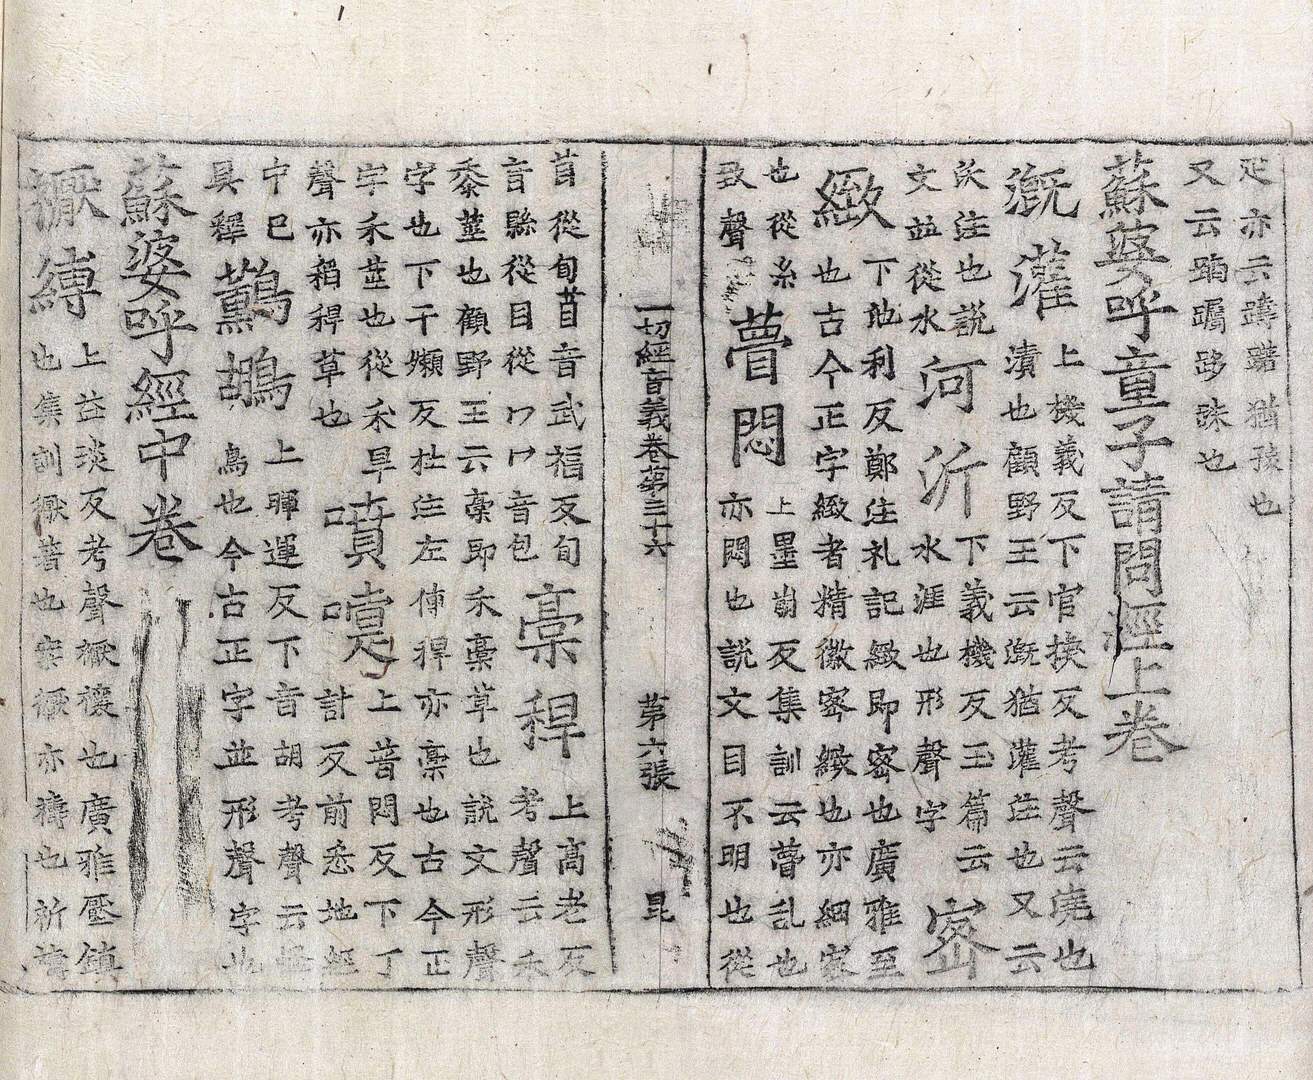 足亦云躊躇猶豫也
又云躑躅跢跦也
蘇婆呼童子請問經上卷
溉灌
上機義反下官換反考聲云澆也
漬也顧野王云溉猶灌注也又云
沃注也說
文並從水
河沂
下義機反玉篇云
水涯也形聲字
密
緻
下池利反鄭注礼記緻即密也廣雅至
也古今正字緻者精微密緻也亦綱密
也從糸
致聲
瞢悶
上墨崩反集訓云瞢乱也
亦悶也說文目不明也從
一切經音義卷第三十六 第六張 昆
苜從旬苜音武福反旬
音縣從目從勹勹音包
稾稈
上高老反
考聲云禾
黍莖也顧野王云稾即禾稾草也說文形聲
字也下干嬾反杜注左傳稈亦稾也古今正
字禾莖也從禾旱
聲亦稻稈草也
噴嚏
上普悶反下丁
計反前悉地經
中已
具釋
鶘
上暉運反下音胡考聲云怪
鳥也今古正字並形聲字也
蘇婆呼經中卷
縛
上益琰反考聲禳也廣雅壓鎮
也集訓著也案亦禱也祈禱